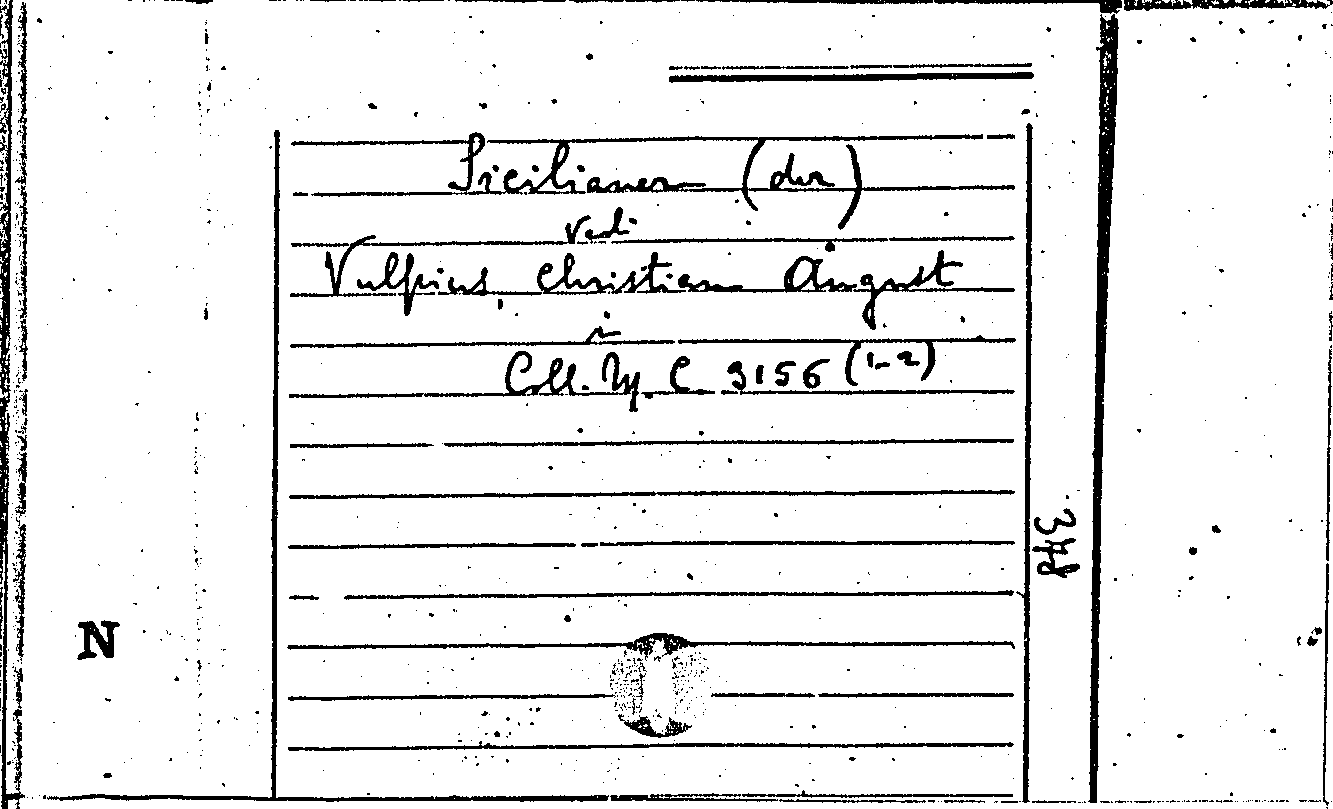 Sicilianer (der)
Vedi
Vulpius, Christian August
in
Coll. C. 3156 (1-2)
348.
N